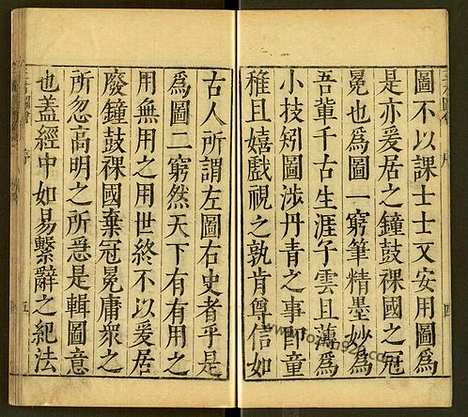 圖不以課士士又安用圖爲
是亦爰居之鐘鼓裸國之冠
冕也爲圖一窮筆精墨妙爲
吾輩千古生涯子雲且薄爲
小技矧圖涉丹青之事卽童
稚且嬉戲視之孰肯尊信如
古人所謂左圖右史者乎是
爲圖二窮然天下有有用之
用無用之用世終不以爰居
廢鐘鼓裸國棄冠冕庸衆之
所忽高明之所悉是輯圖意
也蓋經中如易繫辭之紀法